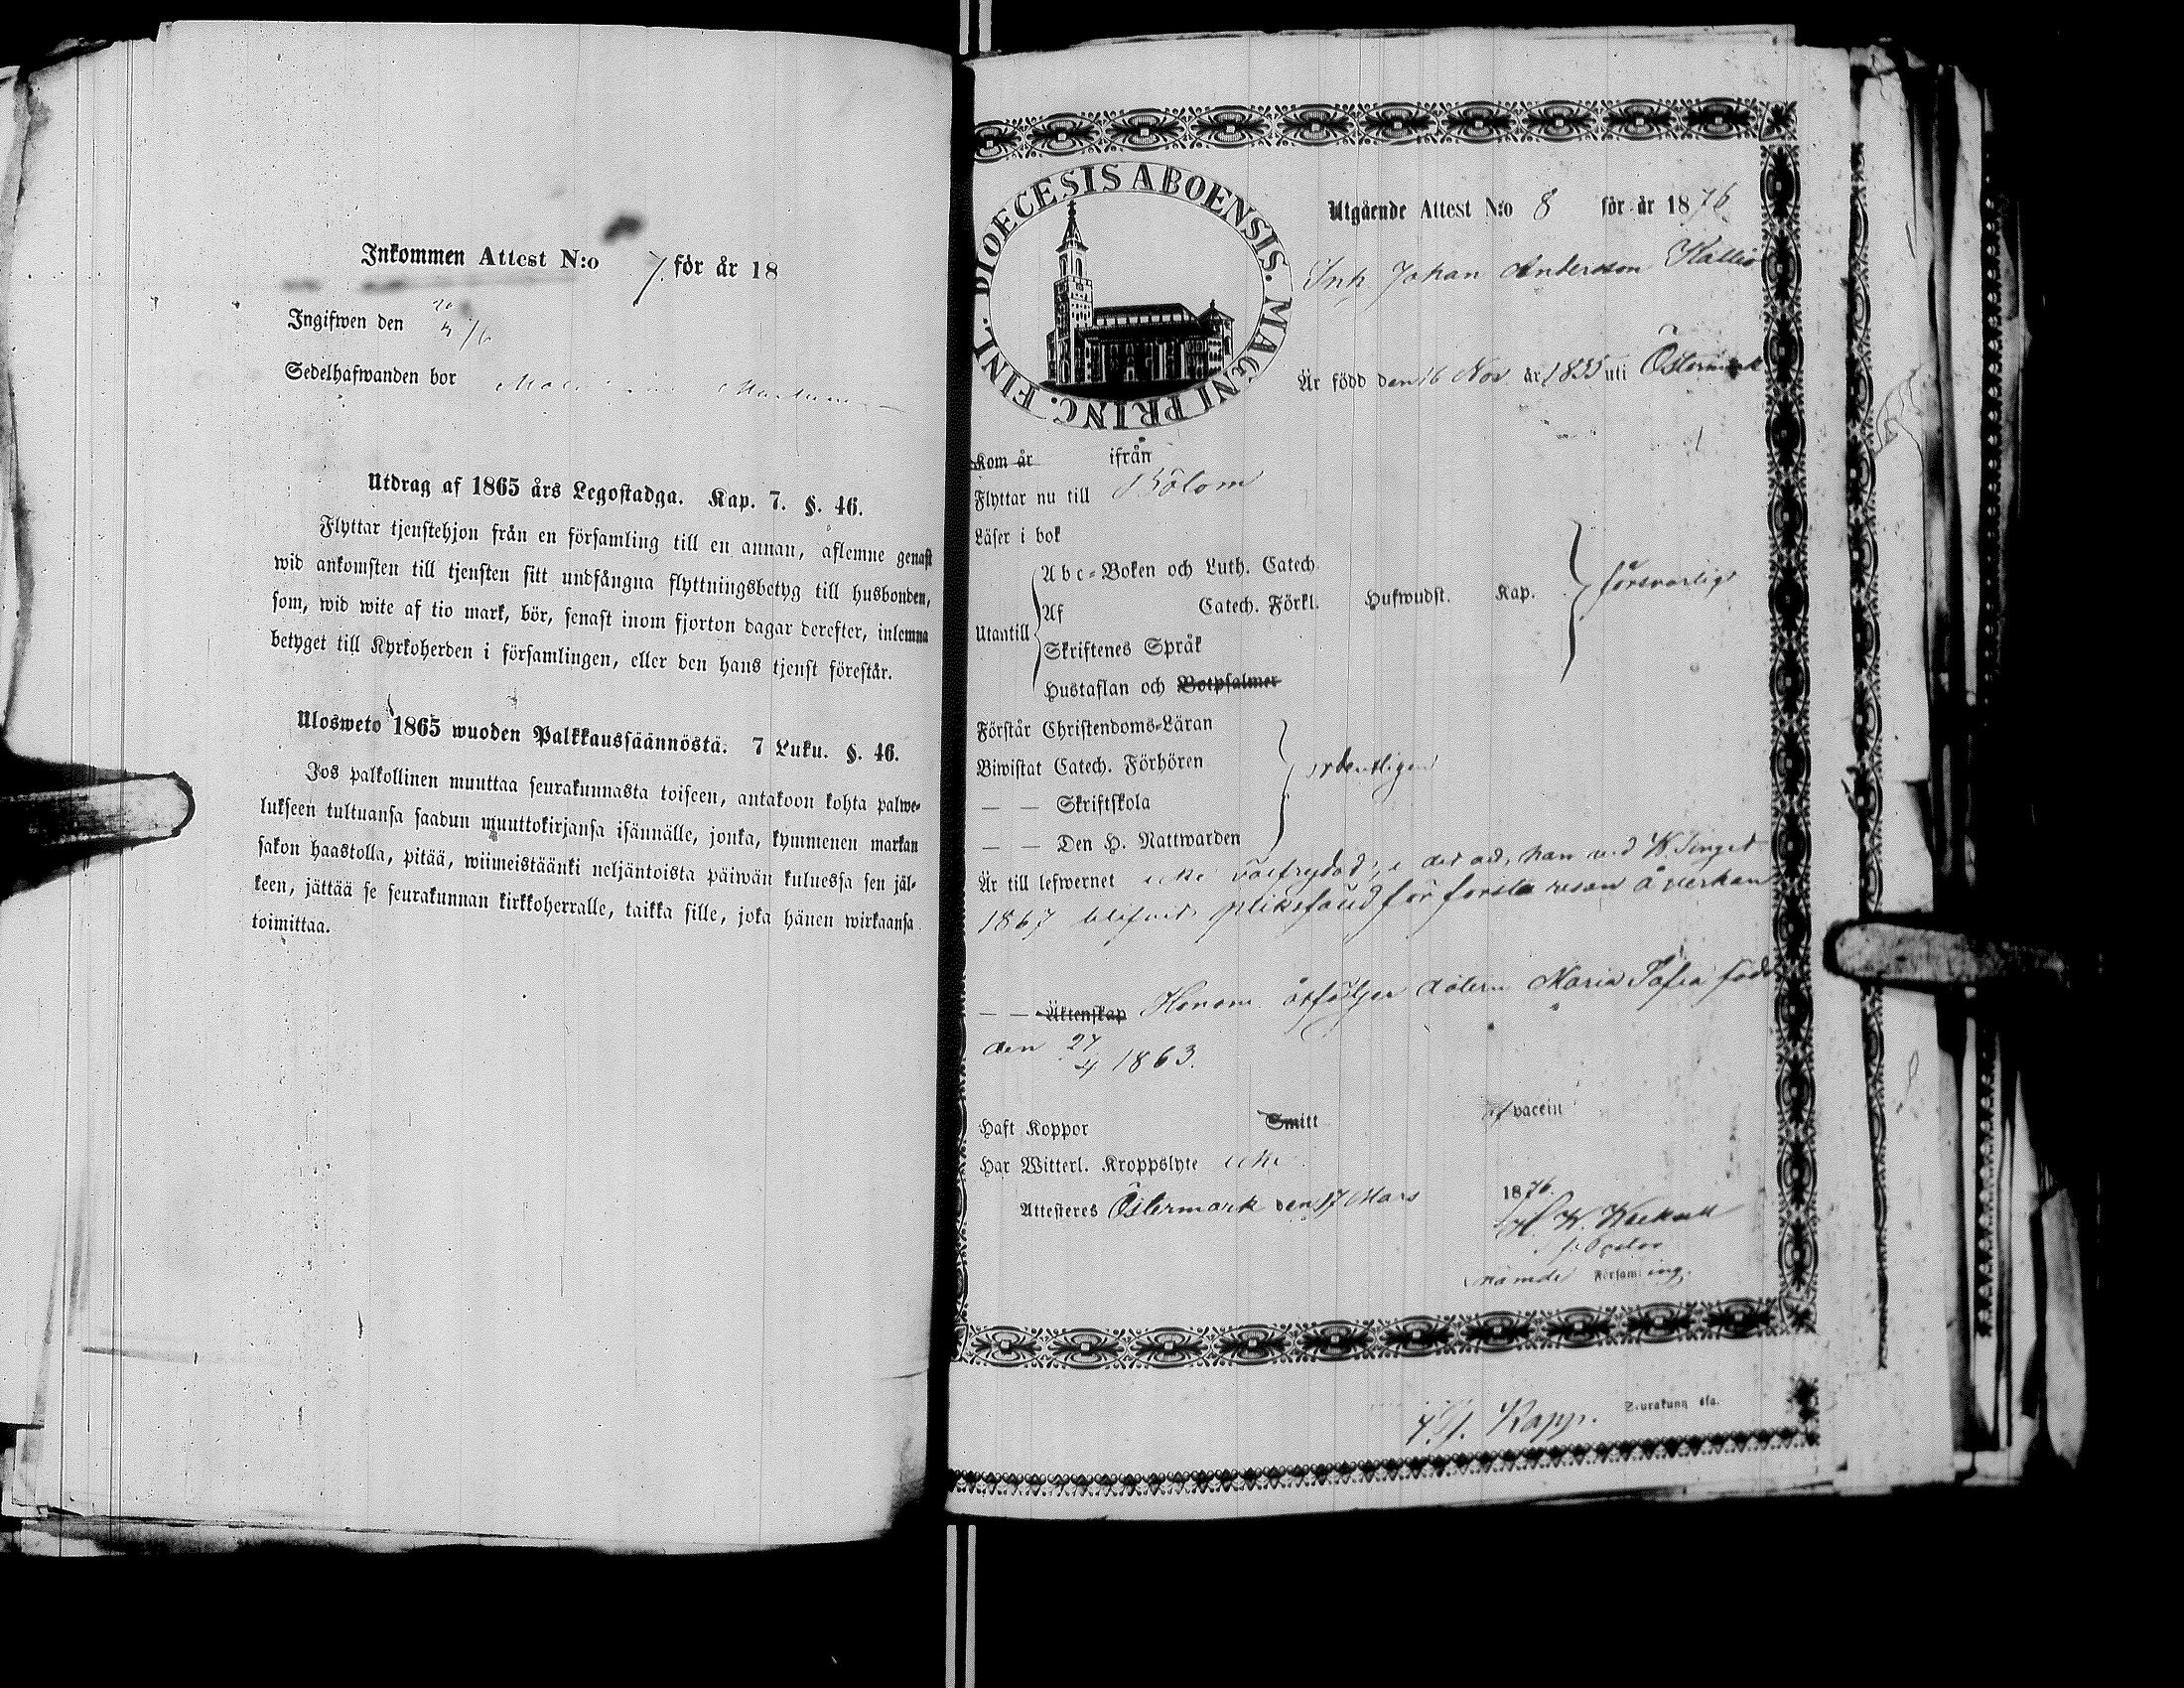 Inkommen Attest N:o 7. för år 18
Ingifwen den 20/4 76
Sedelhafwanden bor
Utdrag af 1865 års Legostadga. Kap. 7. §. 46.
Flyttar tjenstehjon från en församling till en annan, aflemne genast
wid ankomsten till tjensten sitt undfångna flyttningsbetyg till husbonden,
som, wid wite af tio mark, bör, senast inom fjorton dagar derefter, inlemna
betyget till Kyrkoherden i församlingen, eller den hans tjenst förestår.
Ulosweto 1865 wuoden Palkkaussäännöstä. 7 Luku. §. 46.
Jos palkollinen muuttaa seurakunnasta toiseen, antakoon kohta palwe-
lukseen tultuansa saadun muuttokirjansa isännälle, jonka, kymmenen markan
sakon haastolla, pitää, wiimeistäänki neljäntoista päiwän kuluessa sen jäl-
keen, jättää se seurakunnan kirkkoherralle, taikka sille, joka hänen wirkaansa
toimittaa.
DIOECESIS ABOENSIS. MAGNI PRINC. FINL.
Utgående Attest N:o 8 för år 1876
Inh Johan Andersson Kallio
Är född den 16 Nov år 1835 uti Östermark
Kom år ifrån
Flyttar nu till Bötom
Läser i bok
Utantill
Abc-Boken och Luth. Catech.
Af Catech. Förkl. Hufwudst. Kap.
försvarligt
Skriftenes Språk
Hustaflan och Botpsalmer
Förstår Christendoms-Läran
Biwistat Catech. Förhören
ordentligen
— — Skriftskola
— — Den H. Nattwarden
Är till lefwernet icke välfrejdad, i det att han vid W. Tinget
1867 blifvit pliktfäld för första resan åverkan
— — Äktenskap Honom åtföljer dotern Maria Sofia född
den 27/4 1863.
Haft Koppor Smitt af vaccin
Har Witterl. Kroppslyte icke
Attesteres Östermark den 17 Mars 1876.
nämde Församling.
Seurakunnasa.